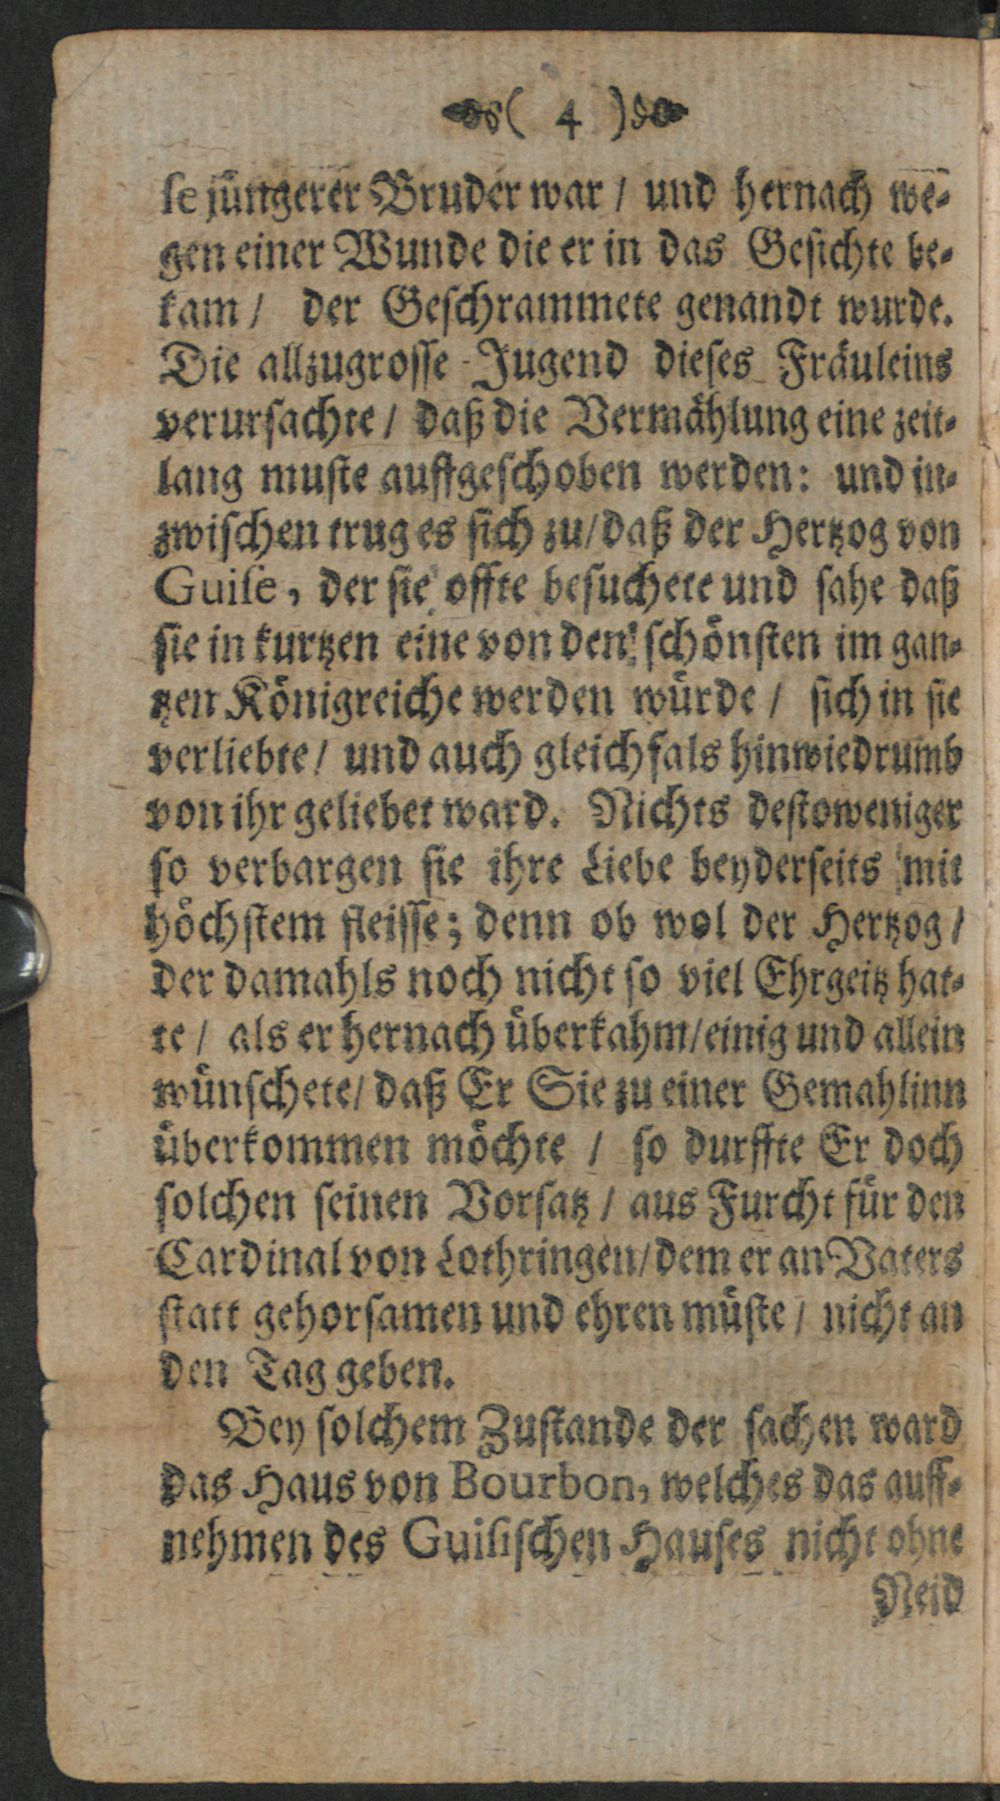 ( 4 )
se jüngerer Bruder war / und hernach we-
gen einer Wunde die er in das Gesichte be-
kam / der Geschrammete genandt wurde.
Die allzugrosse Jugend dieses Fräuleins
verursachte / daß die Vermählung eine zeit-
lang muste auffgeschoben werden: und in-
zwischen trug es sich zu / daß der Hertzog von
Guise, der sie offte besuchete und sahe daß
sie in kurtzen eine von den schönsten im gan-
tzen Königreiche werden würde / sich in sie
verliebte / und auch gleichfals hinwiedrumb
von ihr geliebet ward. Nichts destoweniger
so verbargen sie ihre Liebe beyderseits mit
höchstem fleisse; denn ob wol der Hertzog /
der damahls noch nicht so viel Ehrgeitz hat-
te / als er hernach überkahm / einig und allein
wünschete / daß Er Sie zu einer Gemahlinn
überkommen möchte / so durffte Er doch
solchen seinen Vorsatz / aus Furcht für den
Cardinal von Lothringen / dem er an Vaters
statt gehorsamen und ehren müste / nicht an
den Tag geben.
Bey solchem Zustande der sachen ward
das Haus von Bourbon, welches das auff-
nehmen des Guisischen Hauses nicht ohne
Neid